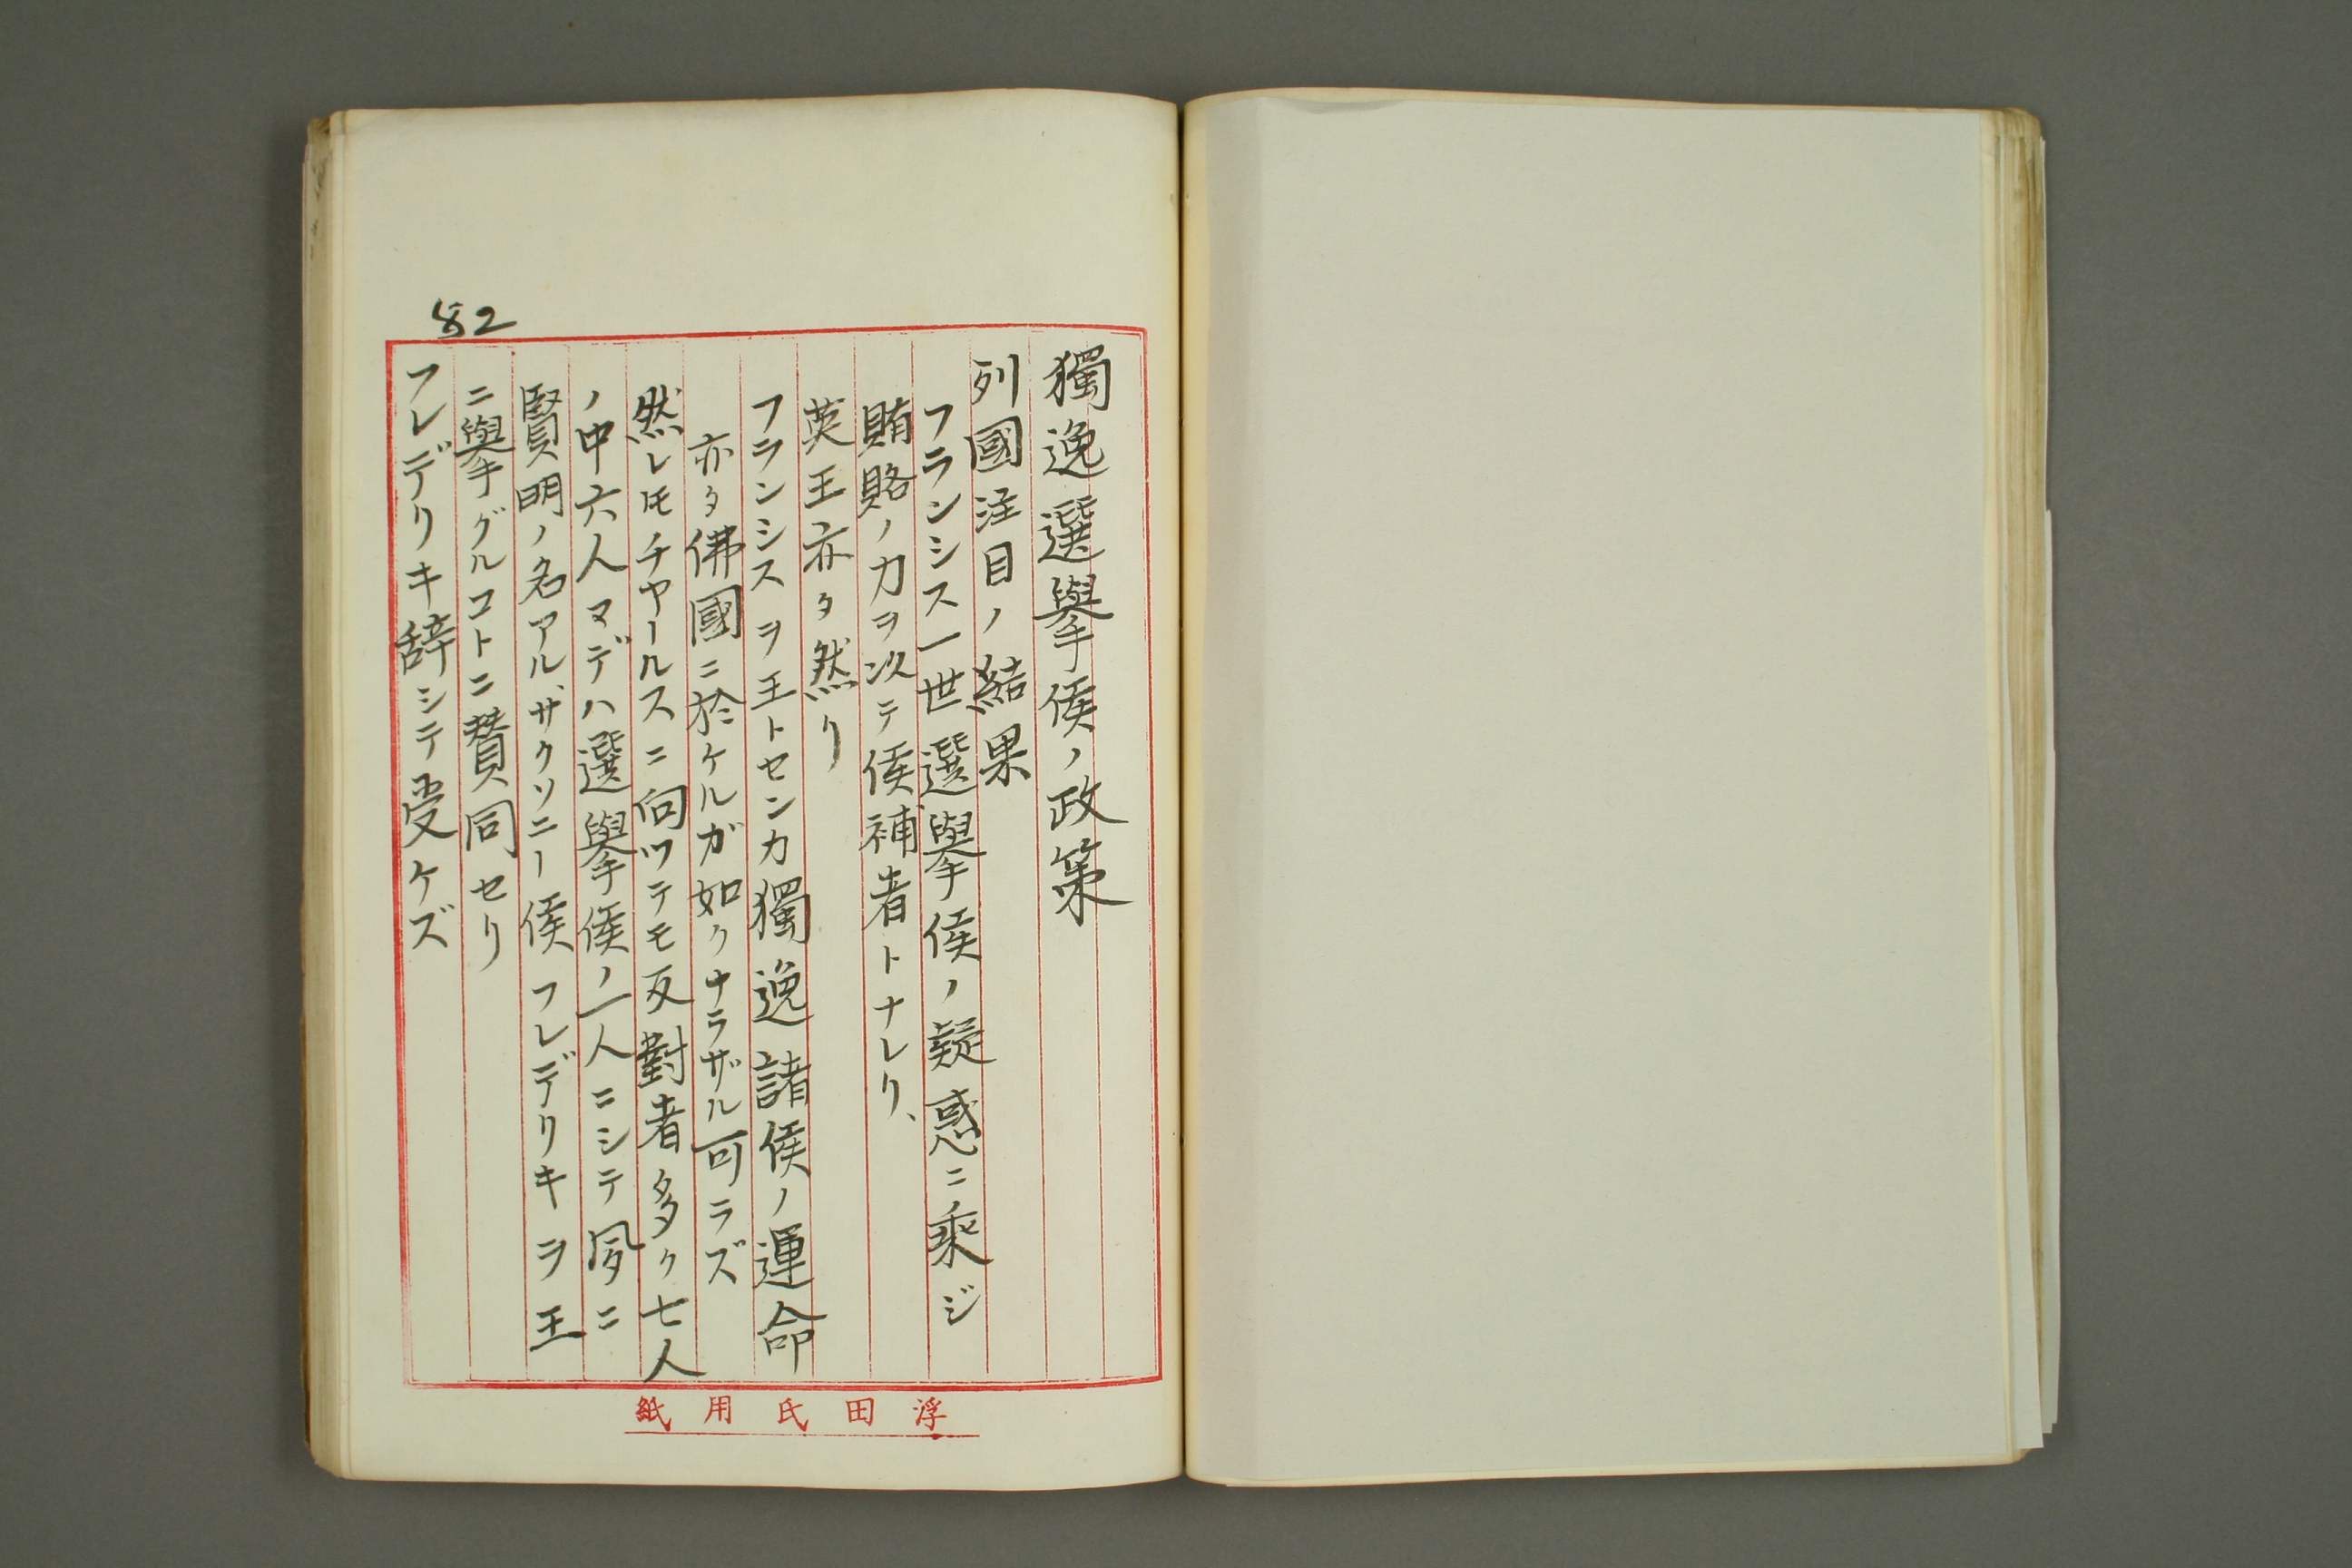 82
獨逸選擧侯ノ政策
列國注目ノ結果
フランシス一世選擧侯ノ疑惑ニ乘ジ
賄賂ノ力ヲ以テ侯補者トナレリ、
英王亦タ然リ
フランシスヲ王トセンカ獨逸諸侯ノ運命
亦タ佛國ニ於ケルガ如クナラザル可ラズ
然レ𪜈チヤールスニ向ツテモ反對者多ク七人
ノ中六人マデハ選擧侯ノ一人ニシテ夙ニ
賢明ノ名アルザクソニー侯フレデリキヲ王
ニ擧グルコトニ賛同セリ
フレデリキ辞シテ受ケズ
浮田氏用紙